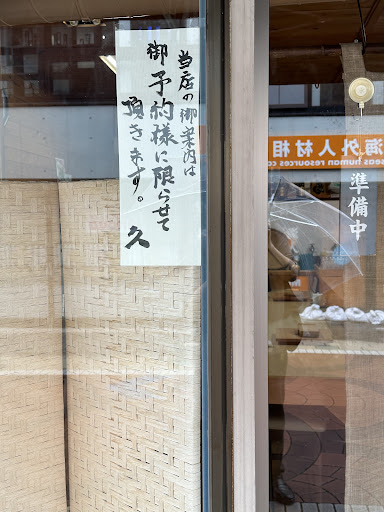 当店の御案内は
御予約様に限らせて
頂きます。
久
準備中
海外人材相
seas human resources co